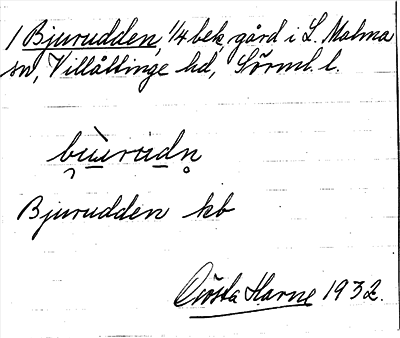 1 Bjurudden, 1/4 bek. gård i L. Malma
sn, Villåttinge hd, Sörml. l.
bi̯ùrudn̥
Bjurudden kb
Gösta Harne 1932.